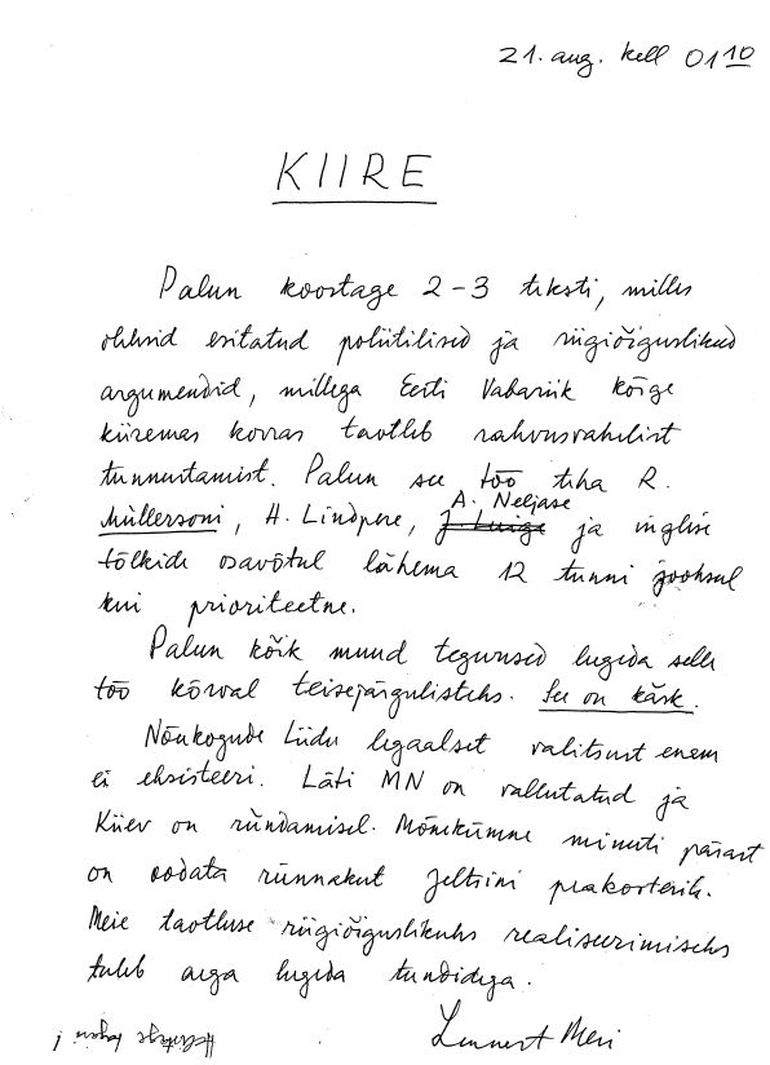 21. aug. kell 01 10
KIIRE
Palun koostage 2-3 teksti, milles
oleksid esitatud poliitilised ja riigiõiguslikud
argumendid, millega Eesti Vabariik kõige
kiiremas korras taotleb rahvusvahelist
tunnustamist. Palun see töö teha R.
A. Neljase
Müllersoni, H. Lindpere, J. Luige ja inglise
tõlkide osavõtul lähema 12 tunni jooksul
kui prioriteetne.
Palun kõik muud tegevused lugeda selle
töö kõrval teisejärgulisteks. See on käsk.
Nõukogude Liidu legaalset valitsust enam
ei eksisteeri. Läti MN on vallutatud ja
Kiiev on ründamisel. Mõnekümne minuti pärast
on oodata rünnakut Jeltsini peakorterile.
Meie taotluse riigiõiguslikuks realiseerimiseks
tuleb aega lugeda tundidega.
Lennart Meri